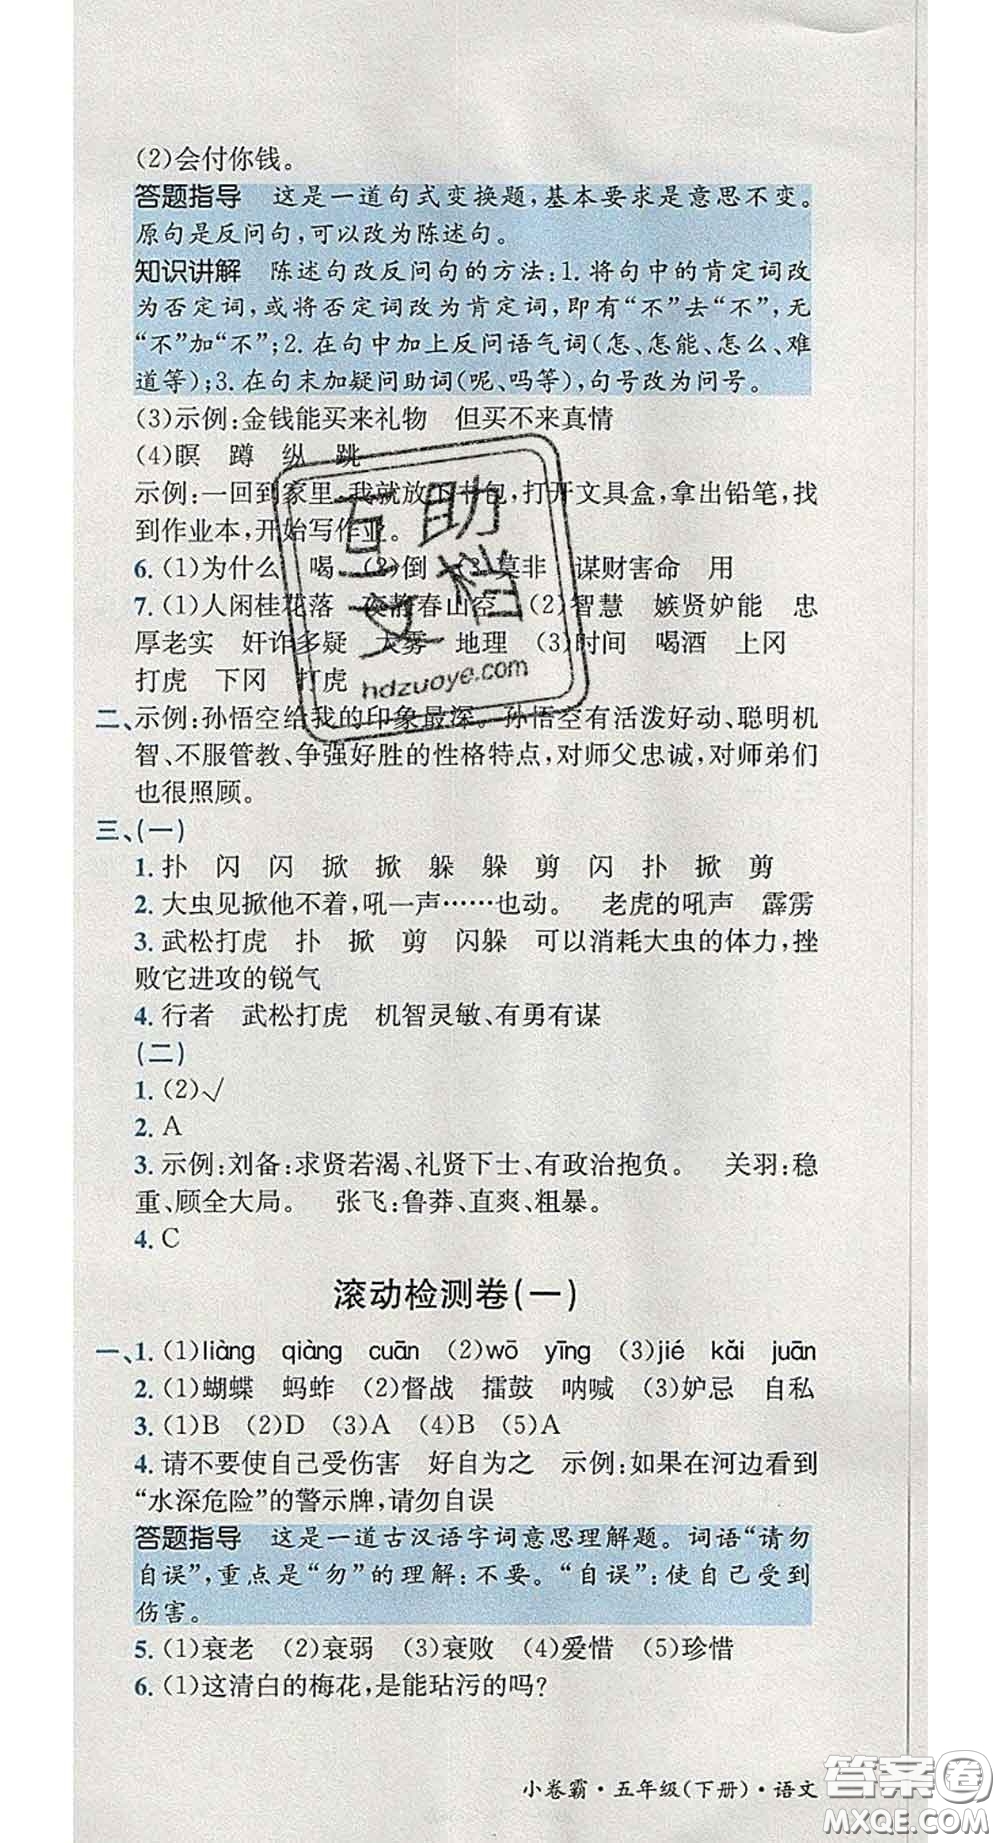 (2)会付你钱。
答题指导 这是一道句式变换题,基本要求是意思不变。
原句是反问句,可以改为陈述句。
知识讲解 陈述句改反问句的方法:1. 将句中的肯定词改
为否定词,或将否定词改为肯定词,即有“不”去“不”,无
“不”加“不”;2. 在句中加上反问语气词(怎、怎能、怎么、难
道等);3. 在句末加疑问助词(呢、吗等),句号改为问号。
(3)示例:金钱能买来礼物 但买不来真情
(4)瞑 蹲 纵 跳
示例:一回到家里,我就放下书包,打开文具盒,拿出铅笔,找
到作业本,开始写作业。
6. (1)为什么 喝 (2)倒 (3)莫非 谋财害命 用
7. (1)人闲桂花落 夜静春山空 (2)智慧 嫉贤妒能 忠
厚老实 奸诈多疑 大雾 地理 (3)时间 喝酒 上冈
打虎 下冈 打虎
二、示例:孙悟空给我的印象最深。孙悟空有活泼好动、聪明机
智、不服管教、争强好胜的性格特点,对师父忠诚,对师弟们
也很照顾。
三、(一)
1. 扑 闪 闪 掀 掀 躲 躲 剪 闪 扑 掀 剪
2. 大虫见掀他不着,吼一声……也动。 老虎的吼声 霹雳
3. 武松打虎 扑 掀 剪 闪躲 可以消耗大虫的体力,挫
败它进攻的锐气
4. 行者 武松打虎 机智灵敏、有勇有谋
(二)
1. (2)√
2. A
3. 示例:刘备:求贤若渴、礼贤下士、有政治抱负。 关羽:稳
重、顾全大局。 张飞:鲁莽、直爽、粗暴。
4. C
滚动检测卷(一)
一、1. (1)liàng qiàng cuān (2)wō yīng (3)jié kǎi juān
2. (1)蝴蝶 蚂蚱 (2)督战 擂鼓 呐喊 (3)妒忌 自私
3. (1)B (2)D (3)A (4)B (5)A
4. 请不要使自己受伤害 好自为之 示例:如果在河边看到
“水深危险”的警示牌,请勿自误
答题指导 这是一道古汉语字词意思理解题。词语“请勿
自误”,重点是“勿”的理解:不要。“自误”:使自己受到
伤害。
5. (1)衰老 (2)衰弱 (3)衰败 (4)爱惜 (5)珍惜
6. (1)这清白的梅花,是能玷污的吗?
小卷霸·五年级(下册)·语文
互助文档
hdzuoye.com
答案圈
MXQE.COM